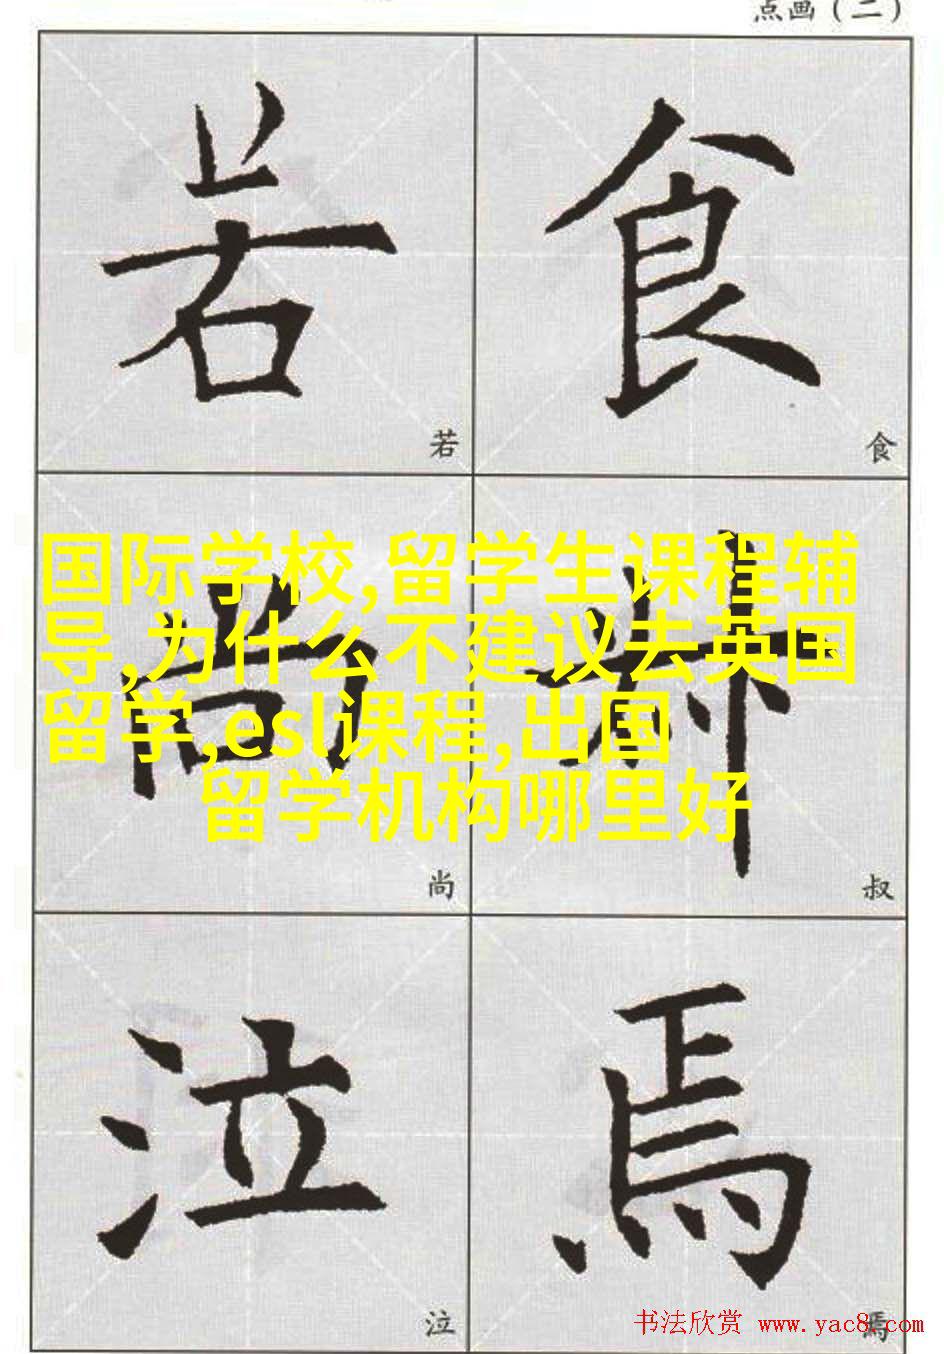 点画（二）
若 食
若 食
国际学校,留学生课程辅
导,为什么不建议去英国
留学,esl课程,出国
留学机构哪里好
尚 叔
尚 叔
泣 焉
泣 焉
书法欣赏 www.yac8.com